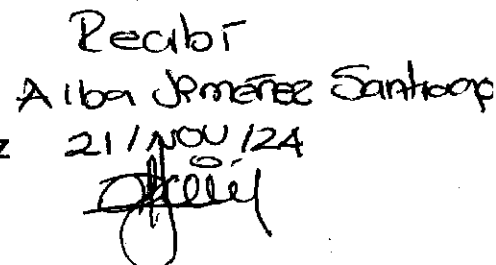 Recibí
Alba Jiménez Santiago
z 21/NOV/24